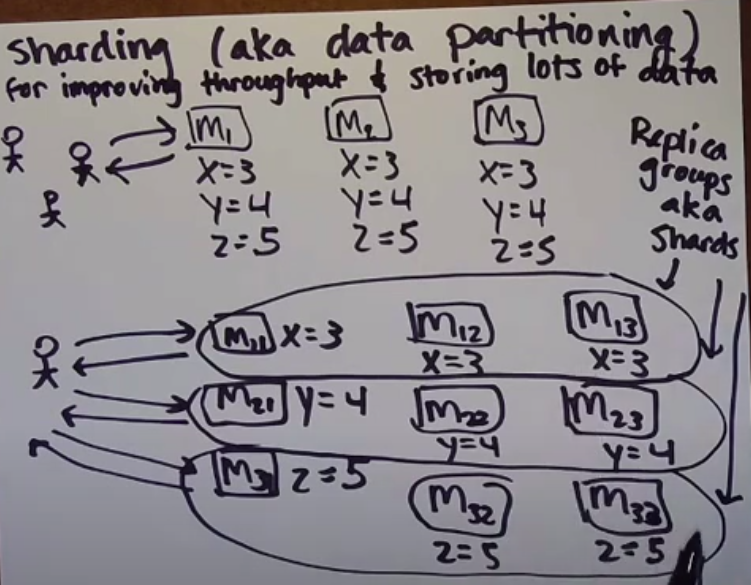 sharding (aka data partitioning)
for improving throughput & storing lots of data
M1 M2 M3
X=3 X=3 X=3
Y=4 Y=4 Y=4
Z=5 Z=5 Z=5
Replica
groups
aka
Shards
M11 X=3 M12 M13
X=3 X=3
M21 Y=4 M22 M23
Y=4 Y=4
M31 Z=5 M32 M33
Z=5 Z=5